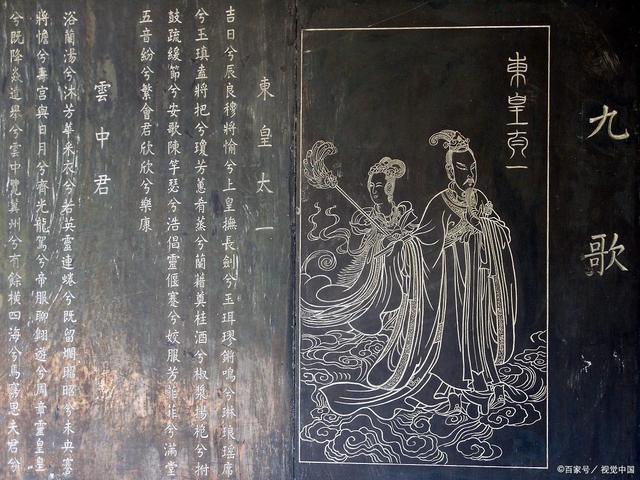 九歌
東皇太一
東皇太一
吉日兮辰良穆將愉兮上皇撫長劍兮玉珥璆鏘鳴兮琳琅瑤席
兮玉瑱盍將把兮瓊芳蕙肴蒸兮蘭藉奠桂酒兮椒漿揚枹兮拊
鼓疏緩節兮安歌陳竽瑟兮浩倡靈偃蹇兮姣服芳菲菲兮滿堂
五音紛兮繁會君欣欣兮樂康
雲中君
浴蘭湯兮沐芳華采衣兮若英靈連蜷兮既留爛昭昭兮未央蹇
將憺兮壽宮與日月兮齊光龍駕兮帝服聊翱遊兮周章靈皇皇
兮既降猋遠舉兮雲中覽冀州兮有餘橫四海兮焉窮思夫君兮
©百家号／视觉中国